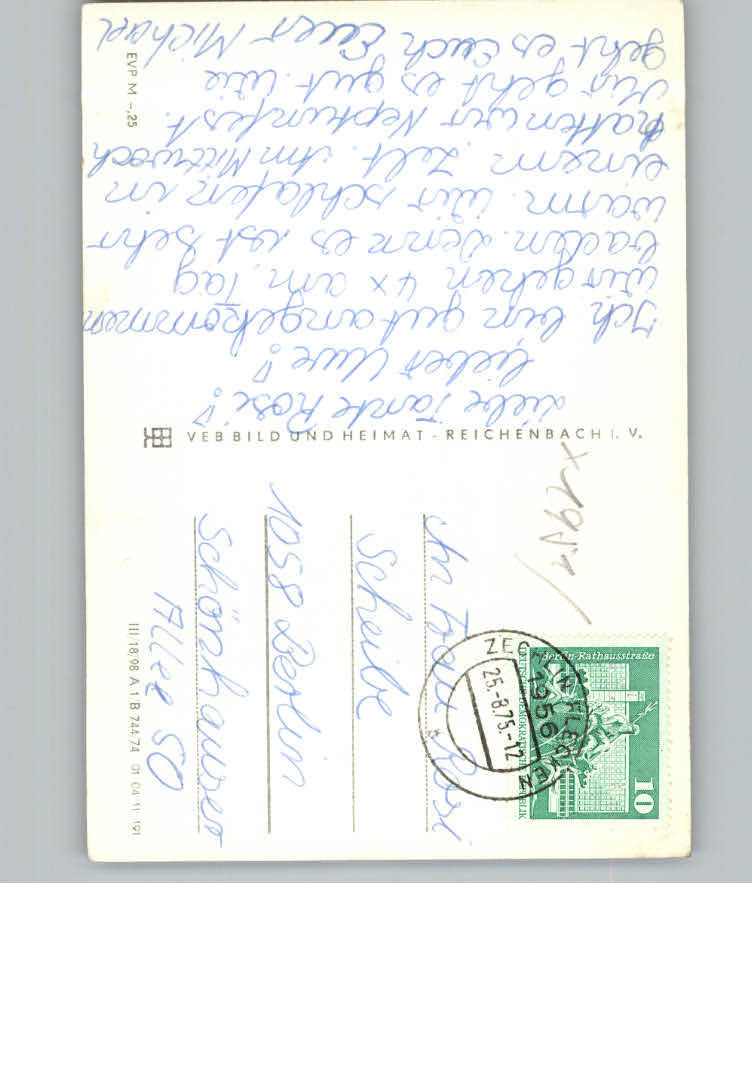 Liebe Tante Rosi!
lieber Uwe!
Ich bin gut angekommen
wir gehen 4x am Tag
baden. denn es ist sehr
warm. Wir schlafen in
einem Zelt. Am Mittwoch
hatten wir Neptunfest.
Mir geht es gut. Wie
geht es Euch Euer Michael
EVP M -,25
VEB BILD UND HEIMAT - REICHENBACH I. V.
An Frau Rosi
Scheibe
1058 Berlin
Schönhauser
Allee 50
III/18/98 A 1/B 744/74 01 04 11 191
Berlin-Rathausstraße
DEUTSCHE DEMOKRATISCHE REPUBLIK
10
1956
25.-8.75.-12